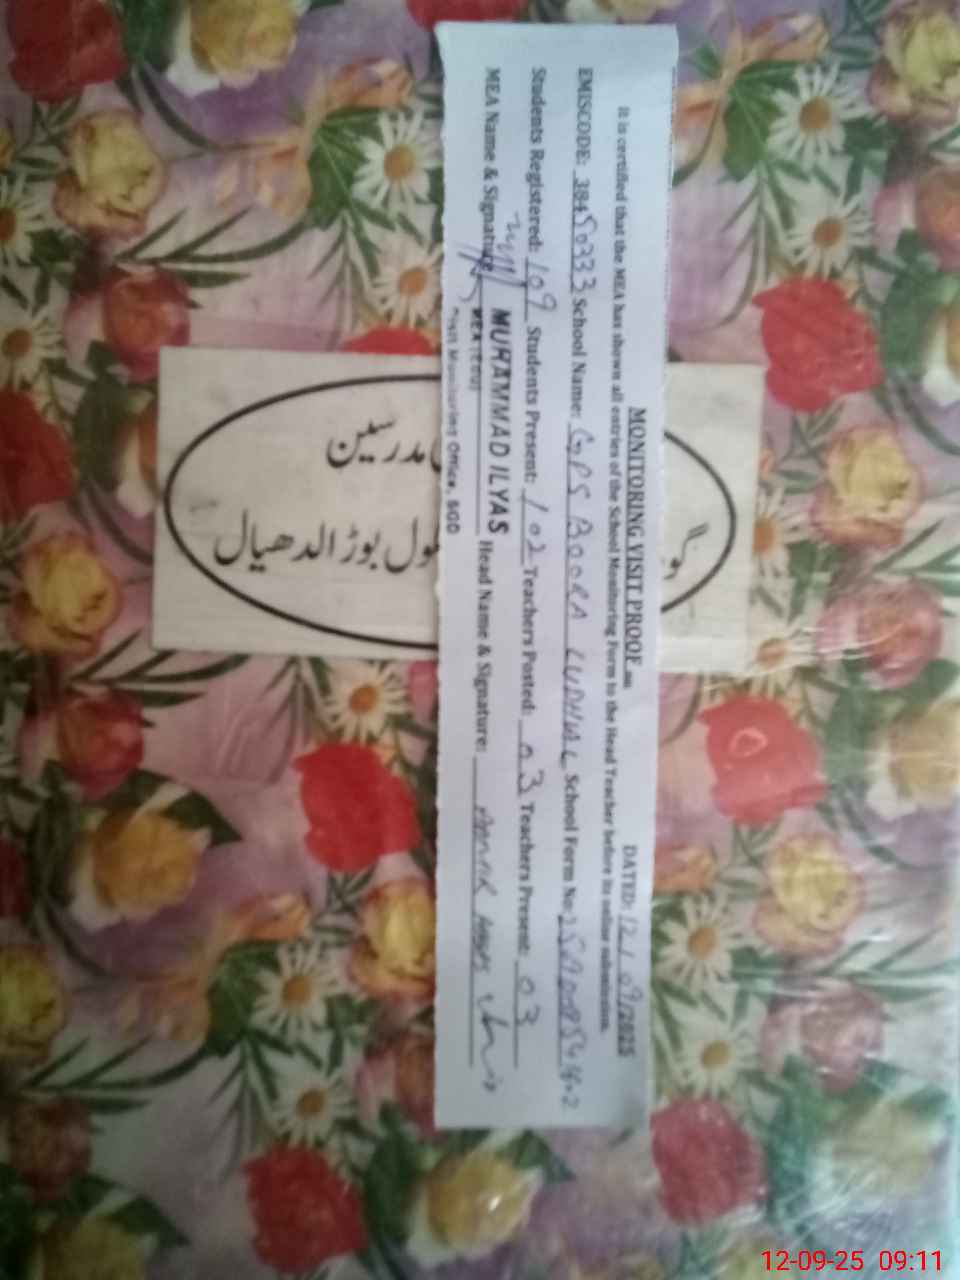 MONITORING VISIT PROOF
DATED: 12/09/2025
It is certified that the MEA has shown all entries of the School Monitoring Form to the Head Teacher before its online submission.
EMISCODE: 38450333 School Name: GPS BOORA LUDHIAL School Form No:
Students Registered: 109 Students Present: 102 Teachers Posted: 03 Teachers Present: 03
MEA Name & Signature MUHAMMAD ILYAS Head Name & Signature:
Monitoring Office, SGD
مدرسین
بوڑ الدھیال
12-09-25 09:11